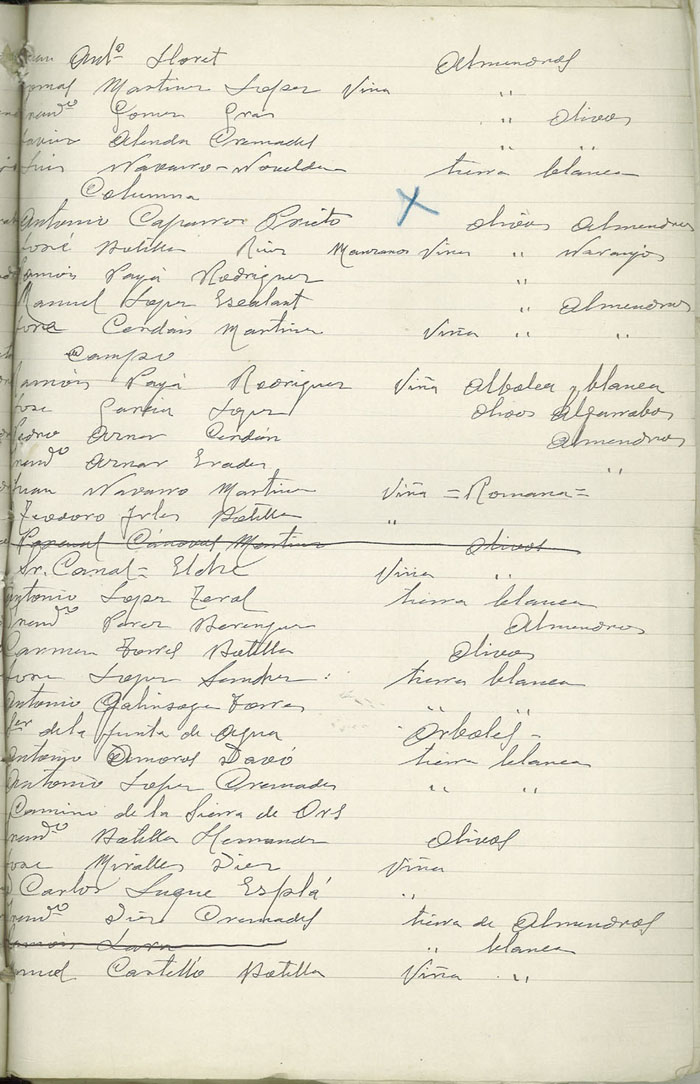 Antº Lloret Almendros
Martinez Lopez Viña "
Gomez Gras " olivos
Javier Alenda Cremades " "
Luis Navarro - Novelda tierra blanca
Columna
Antonio Caparros Prieto olivos Almendros
José Botella Rius Manzanos Viña " Naranjos
Ramón Payá Rodriguez "
Manuel Lopez Escalant " Almendros
Jose Cerdán Martinez Viña " "
Campo
Ramón Payá Rodriguez Viña Albolea y blanca
Jose Garcia Lopez olivos Algarrobos
Pedro Aznar Cerdán Almendros
Aznar Erades "
Juan Navarro Martinez Viña = Romana =
Teodoro Irles Botella "
Pascual Cánovas Martinez olivos
Sr. Canal = Elche Viña "
Antonio Lopez Zeral tierra blanca
Perez Berenguer Almendros
Carmen Torres Botella olivos
Jose Lopez Sanchez : tierra blanca
Antonio Galinsoga Torres " "
de la junta de agua Arboles -
Antonio Amoros Davó tierra blanca
Antonio Lopez Cremades " "
Camino de la Sierra de Ors
Botella Hernandez olivos
Jose Miralles Diez Viña
Carlos Luque Esplá "
Diez Cremades tierra de Almendros
Ramón Lara " blanca
Castelló Botella Viña "